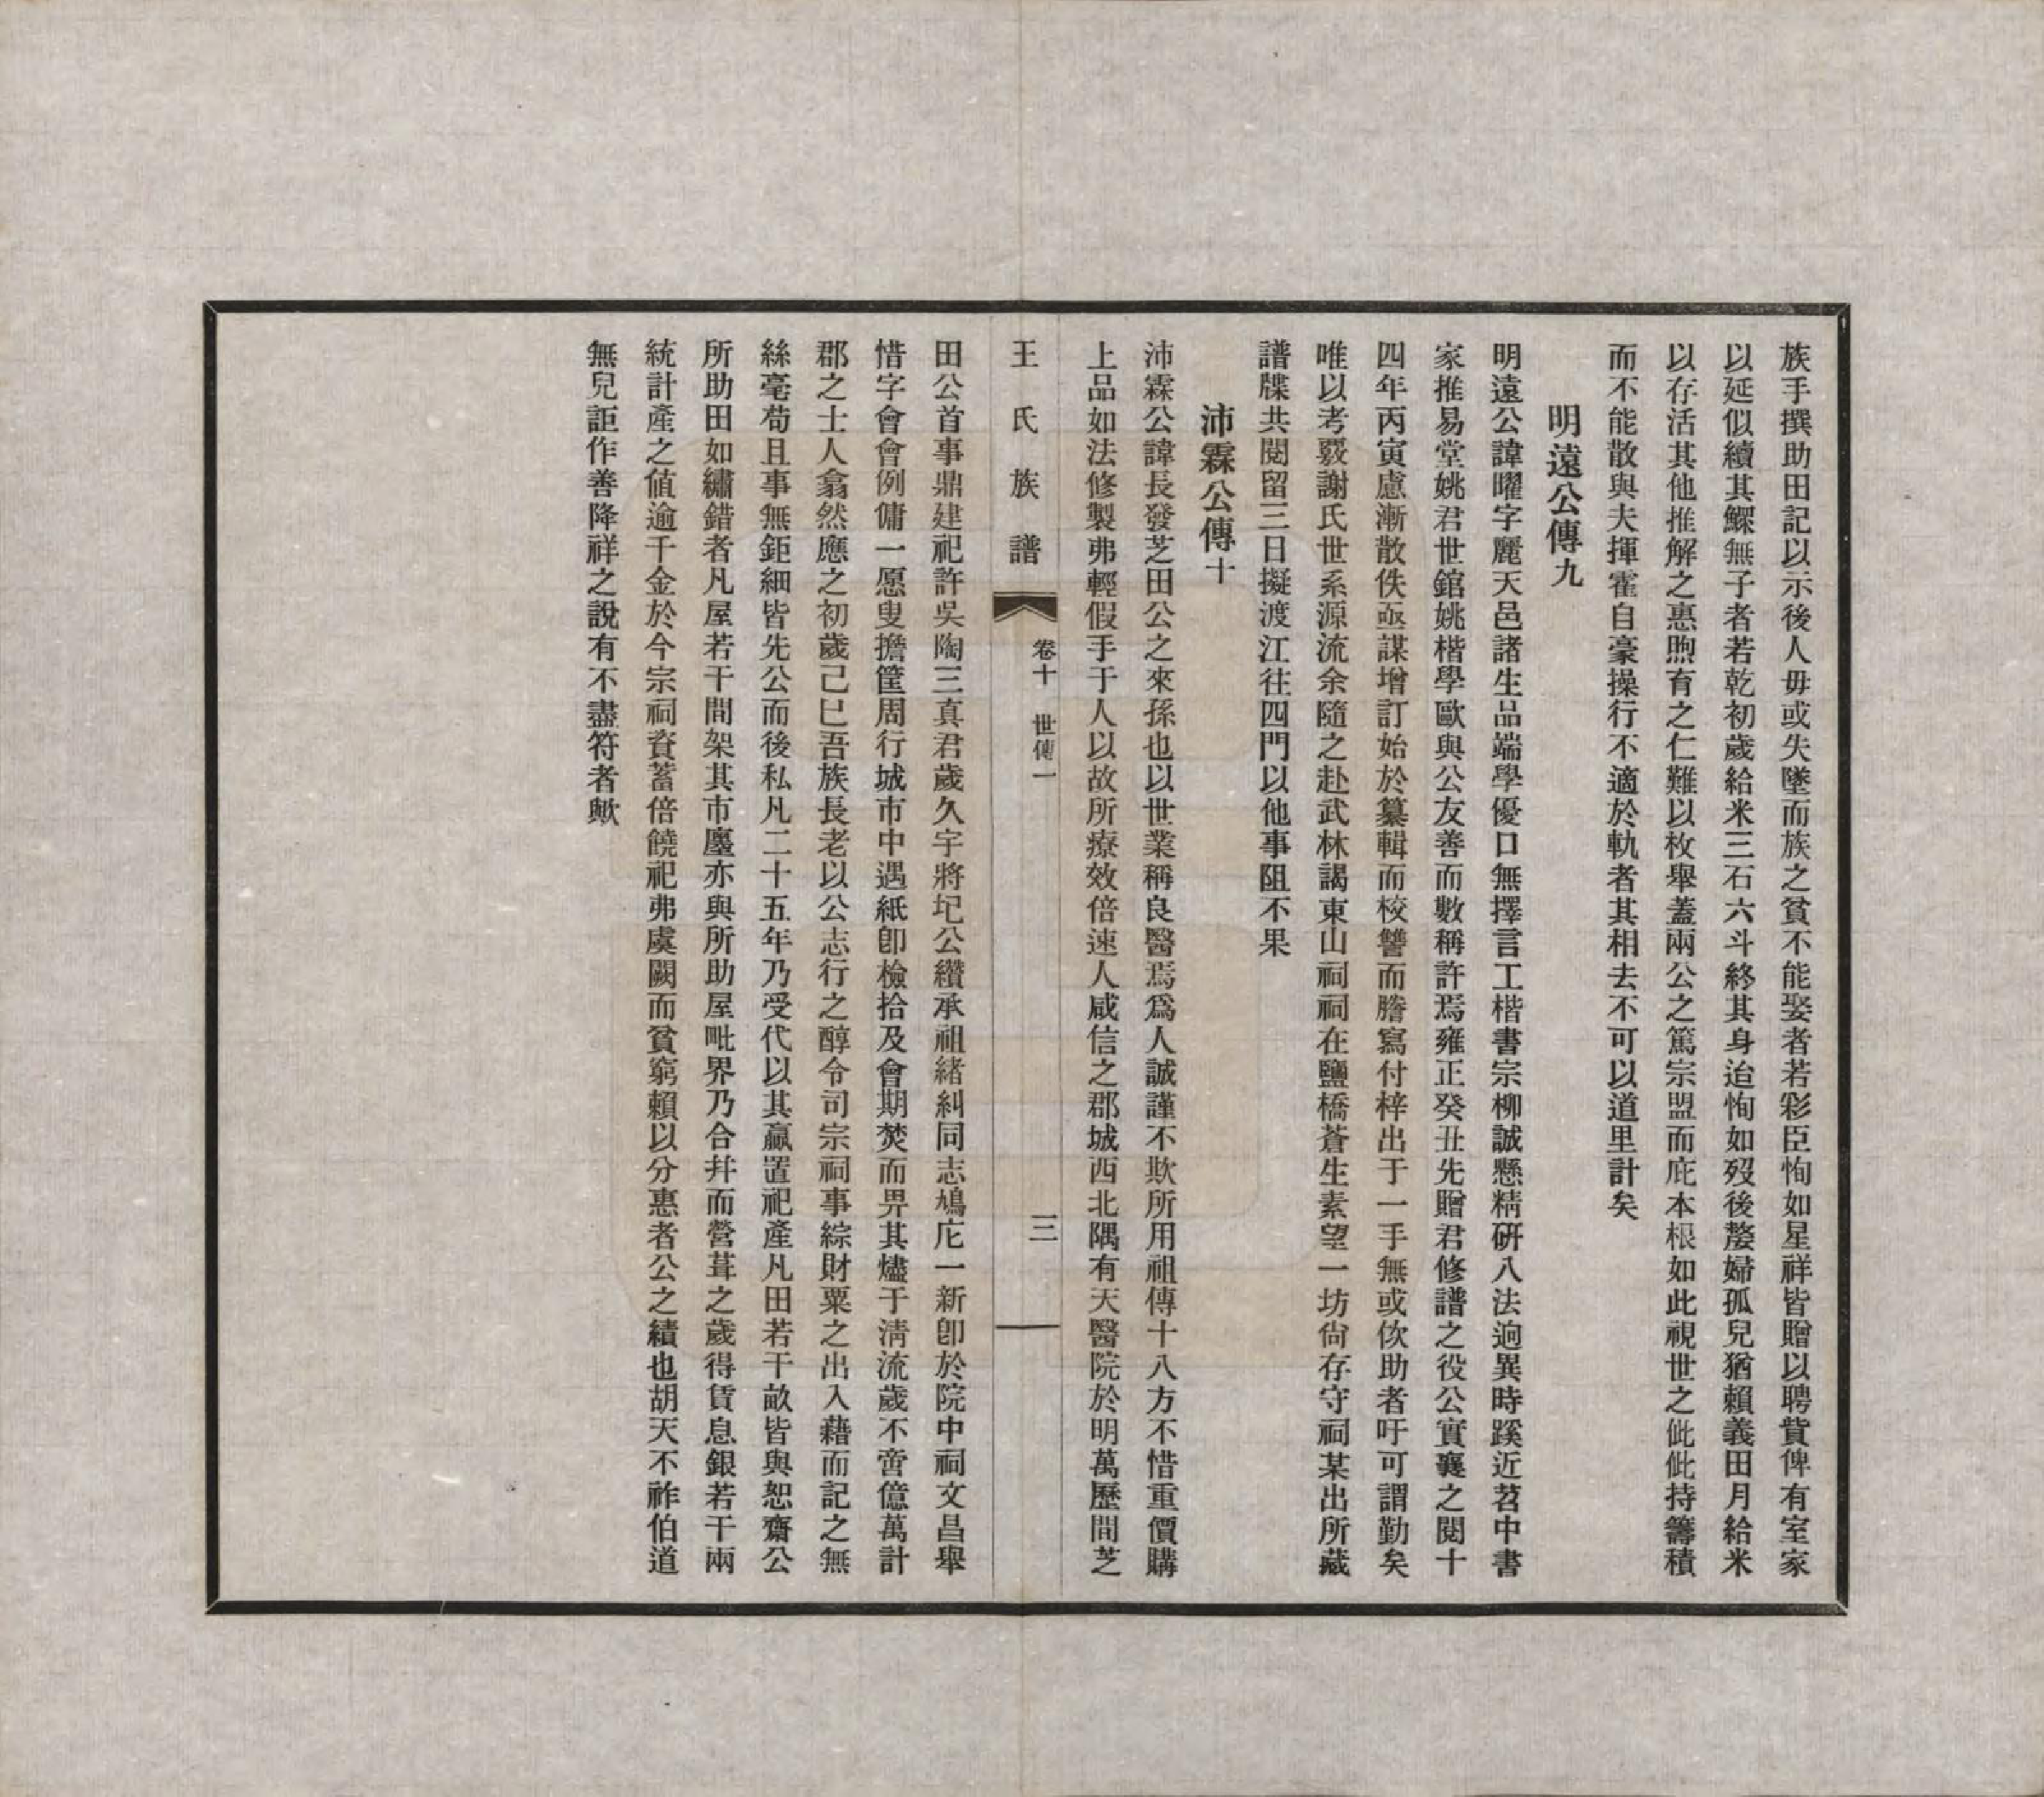 族手撰助田記以示後人毋或失墜而族之貧不能娶者若彩臣恂如星祥皆贈以聘貲俾有室家
以延似續其鰥無子者若乾初歲給米三石六斗終其身迨恂如歿後嫠婦孤兒猶賴義田月給米
以存活其他推解之惠煦育之仁難以枚舉蓋兩公之篤宗盟而庇本根如此視世之佌佌持籌積
而不能散與夫揮霍自豪操行不適於軌者其相去不可以道里計矣
明遠公傳九
明遠公諱曜字麗天邑諸生品端學優口無擇言工楷書宗柳誠懸精研八法逈異時蹊近苕中書
家推易堂姚君世錧姚楷學歐與公友善而數稱許焉雍正癸丑先贈君修譜之役公實襄之閱十
四年丙寅慮漸散佚亟謀增訂始於纂輯而校讐而謄寫付梓出于一手無或佽助者吁可謂勤矣
唯以考覈謝氏世系源流余隨之赴武林謁東山祠祠在鹽橋蒼生素望一坊尙存守祠某出所藏
譜牒共閱留三日擬渡江往四門以他事阻不果
沛霖公傳十
沛霖公諱長發芝田公之來孫也以世業稱良醫焉爲人誠謹不欺所用祖傳十八方不惜重價購
上品如法修製弗輕假手于人以故所療效倍速人咸信之郡城西北隅有天醫院於明萬歷間芝
王氏族譜 卷十 世傳一 三
田公首事鼎建祀許吳陶三真君歲久宇將圮公纘承祖緖糾同志鳩庀一新卽於院中祠文昌舉
惜字會會例傭一愿叟擔筐周行城市中遇紙卽檢拾及會期焚而畀其燼于淸流歲不啻億萬計
郡之士人翕然應之初歲己巳吾族長老以公志行之醇令司宗祠事綜財粟之出入藉而記之無
絲毫苟且事無鉅細皆先公而後私凡二十五年乃受代以其贏置祀產凡田若干畝皆與恕齋公
所助田如繡錯者凡屋若干間架其市廛亦與所助屋毗界乃合幷而營葺之歲得賃息銀若干兩
統計產之値逾千金於今宗祠資蓄倍饒祀弗虞闕而貧窮賴以分惠者公之績也胡天不祚伯道
無兒詎作善降祥之說有不盡符者歟